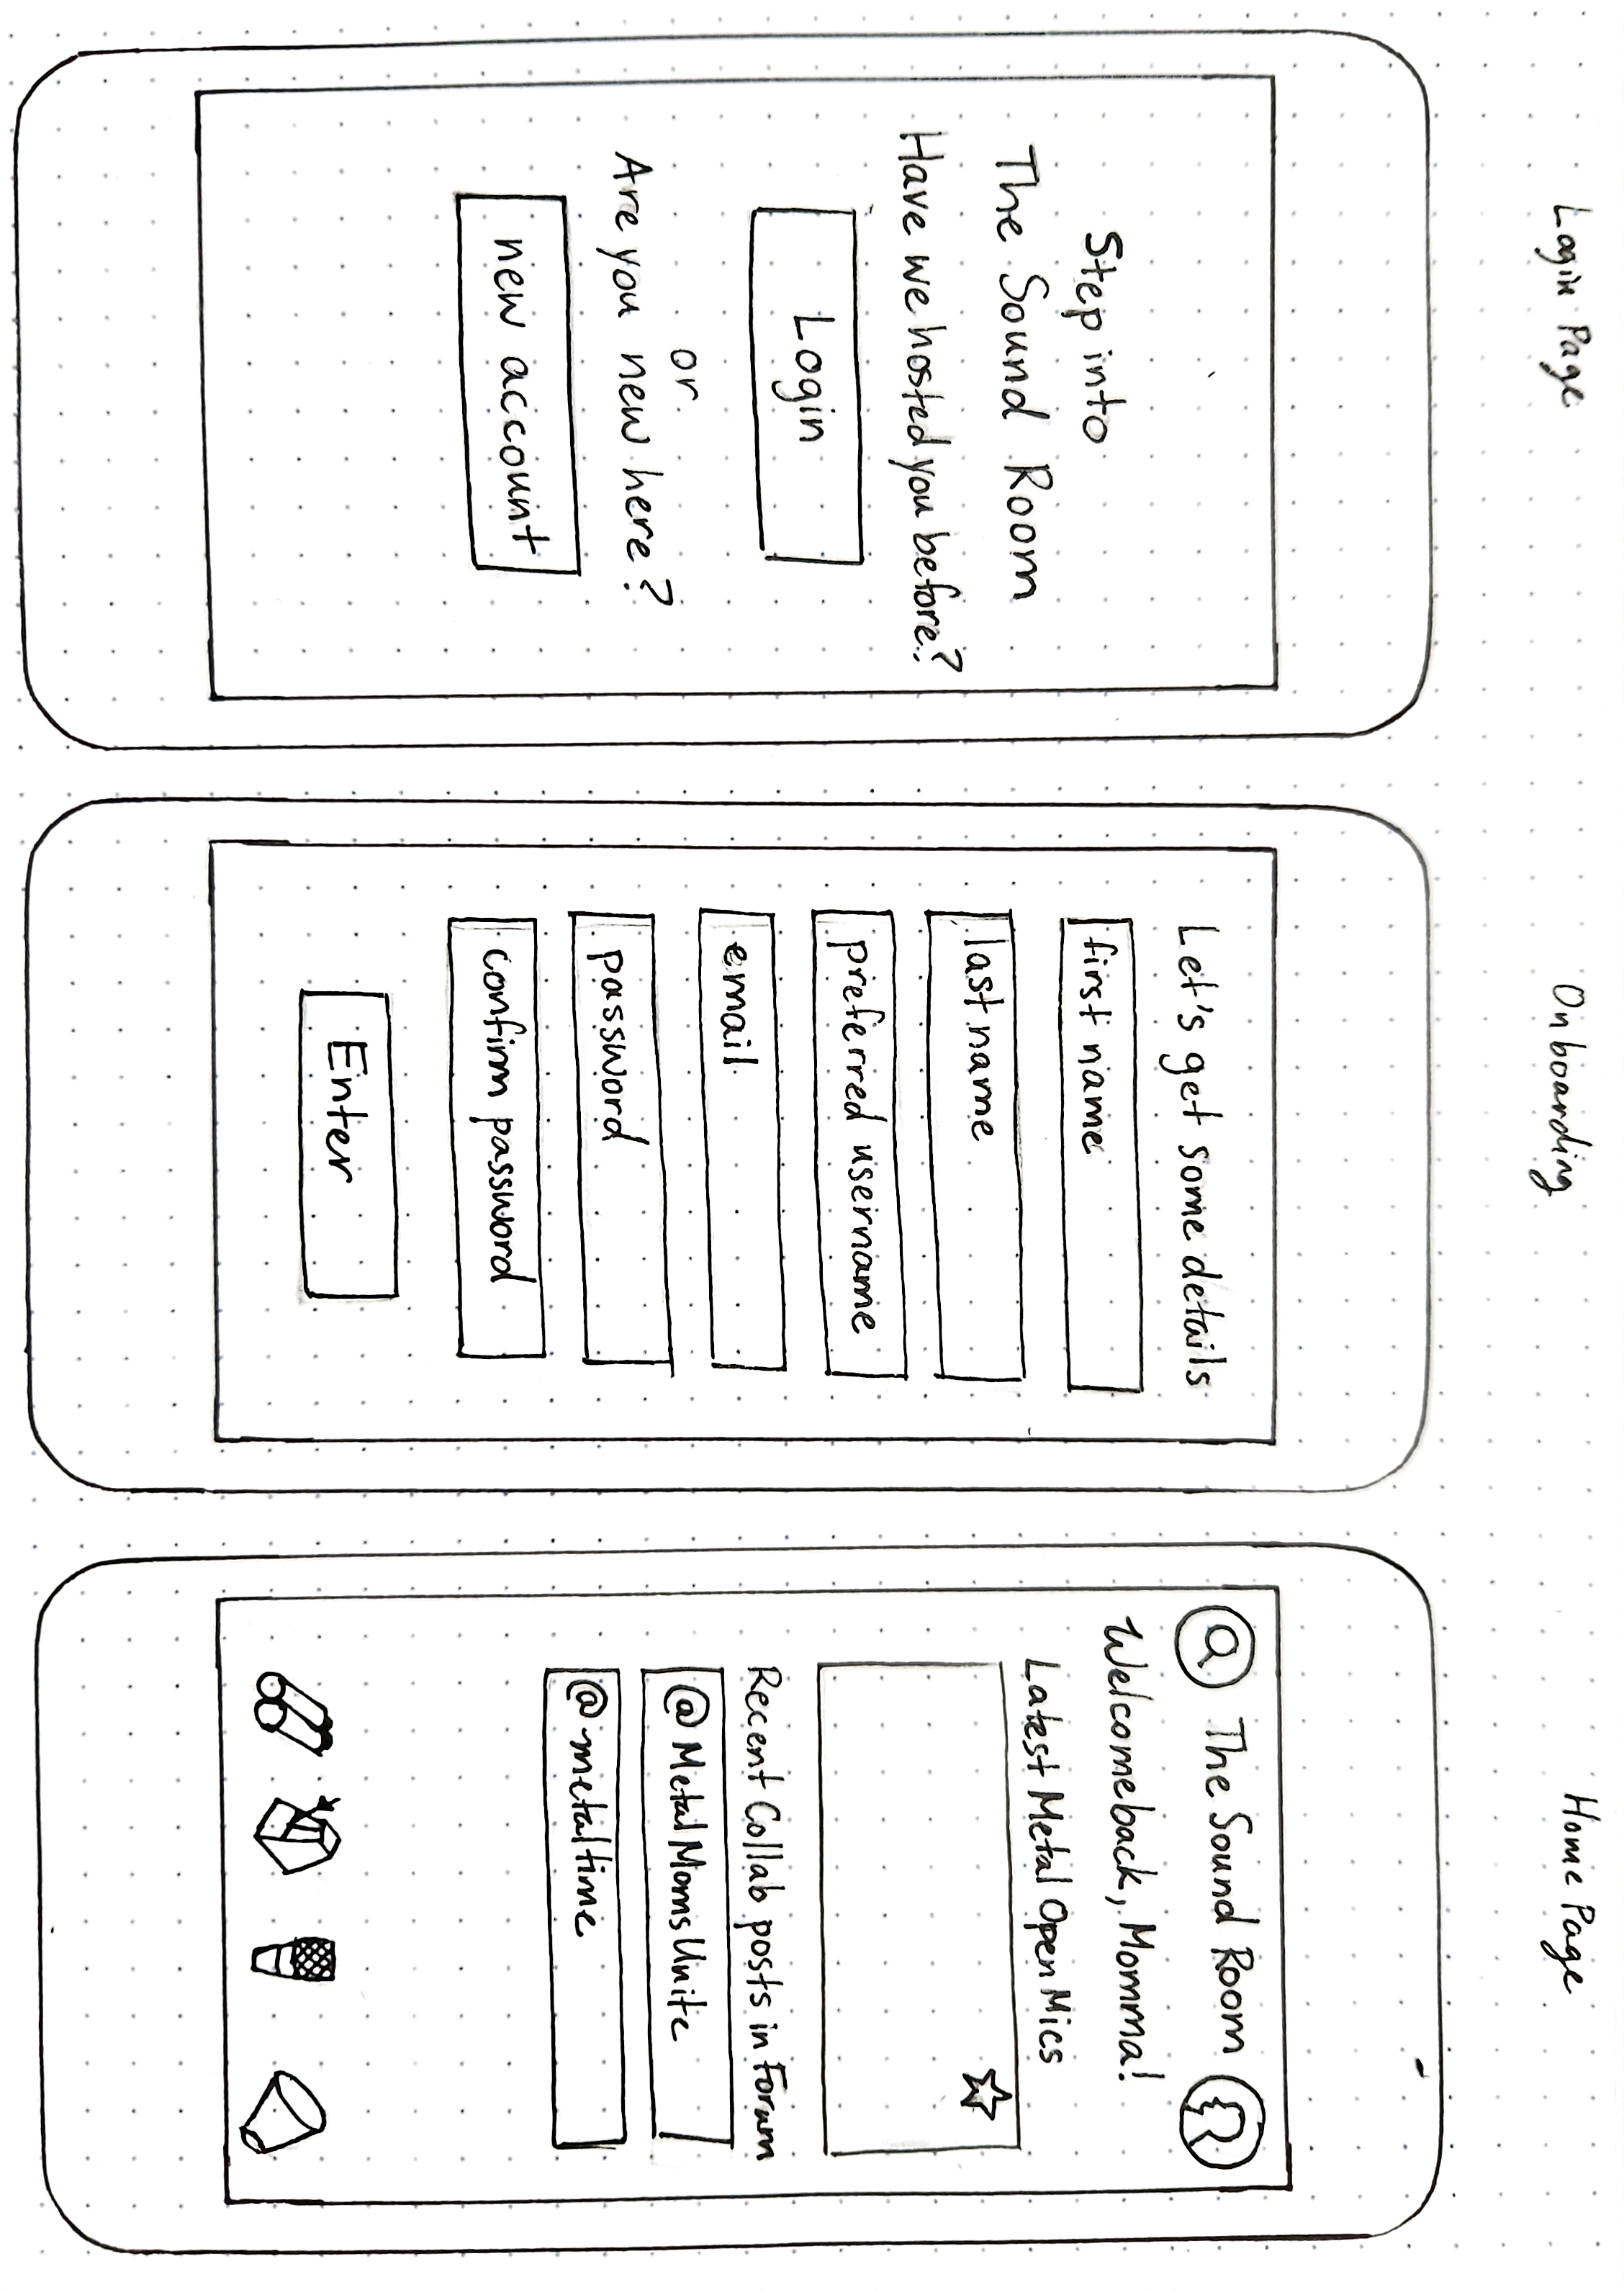 Login Page
Step into
The Sound Room
Have we hosted you before?
Login
or
Are you new here?
new account
Onboarding
Let's get some details
first name
last name
preferred username
email
password
confirm password
Enter
Home Page
The Sound Room
Welcome back, Momma!
Latest Metal Open Mics
Recent Collab posts in Forum
@MetalMomsUnite
@metaltime